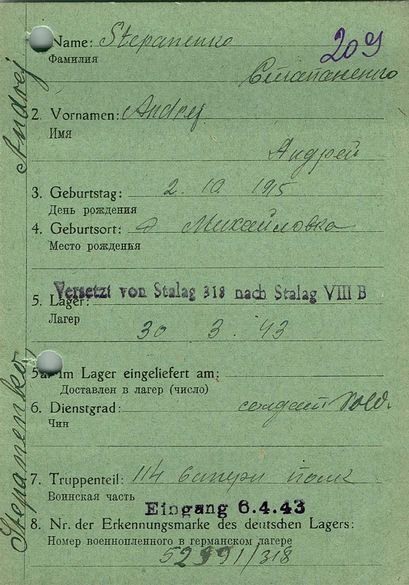 Name: Stepanenko
209
Фамилия
Степаненко
2. Vornamen: Andrej
Имя
Андрей
3. Geburtstag: 2. 10 1915
День рождения
4. Geburtsort: д Михайловка
Место рожденья
Versetzt von Stalag 318 nach Stalag VIII B
5. Lager:
Лагер
30 3. 43
5a. im Lager eingeliefert am:
Доставлен в лагер (число)
6. Dienstgrad: солдат Sold.
Чин
7. Truppenteil: 114 полк
Воинская часть
Eingang 6.4.43
8. Nr. der Erkennungsmarke des deutschen Lagers:
Номер военнопленного в германском лагере
52991/318
Stepanenko Andrej